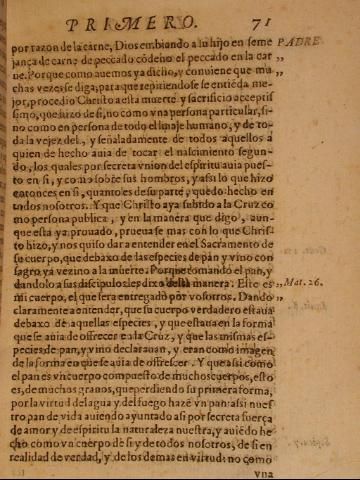 PRIMERO. 71
por razon de la carne, Dios embiando a su hijo en seme PADRE
jança de carne de peccado cōdeno el peccado en la car „
ne. Porque como auemos ya dicho, y conuiene que mu „
chas vezes se diga, para que repitiendose se entiēda me-
jor, procedio Christo a esta muerte y sacrificio acceptis
simo, que hizo de si, no como vna persona particular, si-
no como en persona de todo el linaje humano, y de to-
da la vejez del, y señaladamente de todos aquellos a
quien de hecho auia de tocar el nascimiento segun-
do, los quales por secreta vnion del espiritu auia pues-
to en si, y como sobre sus hombros, y assi lo que hizo
entonces en si, quanto es de su parte, quedo hecho en
todos nosotros. Y que Christo aya subido a la Cruz co
mo persona publica, y en la manera que digo, aun-
que esta ya prouado, prueuase mas con lo que Chris-
to hizo, y nos quiso dar a entender en el Sacramento de
su cuerpo, que debaxo de las especies de pan y vino con
sagro, ya vezino a la muerte. Porque tomando el pan, y
dandolo a sus discipulos les dixo desta manera. Este es „ Mat. 26.
mi cuerpo, el que sera entregado por vosotros. Dando „
claramente a entender, que su cuerpo verdadero estaua
debaxo de aquellas especies, y que estaua en la forma
que se auia de offrescer en la Cruz, y que las mismas es-
pecies de pan, y vino declarauan, y eran como imagen
de la forma en que se auia de offrescer. Y que assi como
el pan es vn cuerpo compuesto de muchos cuerpos, esto
es, de muchos granos, que perdiendo su primera forma,
por la virtud del agua y del fuego hazē vn pan: assi nues
tro pan de vida auiendo ayuntado a si por secreta fuerça
de amor y de espiritu la naturaleza nuestra, y auiēdo he
cho como vn cuerpo de si y de todos nosotros, de si en
realidad de verdad, y de los demas en virtud: no como
vna